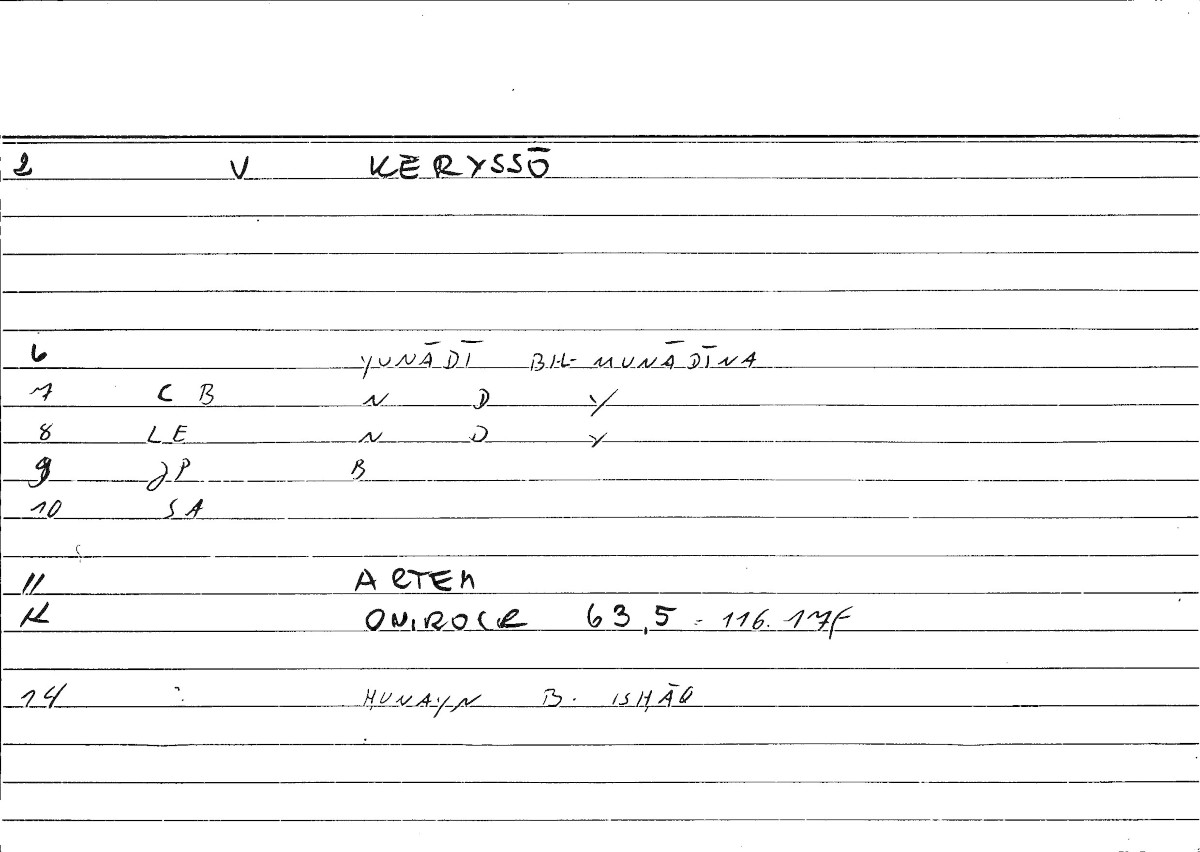 2 V KĒRYSSŌ
6 YUNĀDĪ BI-L-MUNĀDĪNA
7 C B N D Y
8 LE N D Y
9 JP B
10 SA
11 ARTEM
12 ONIROCR 63,5 = 116.17f
14 ḤUNAYN B. ISḤĀQ